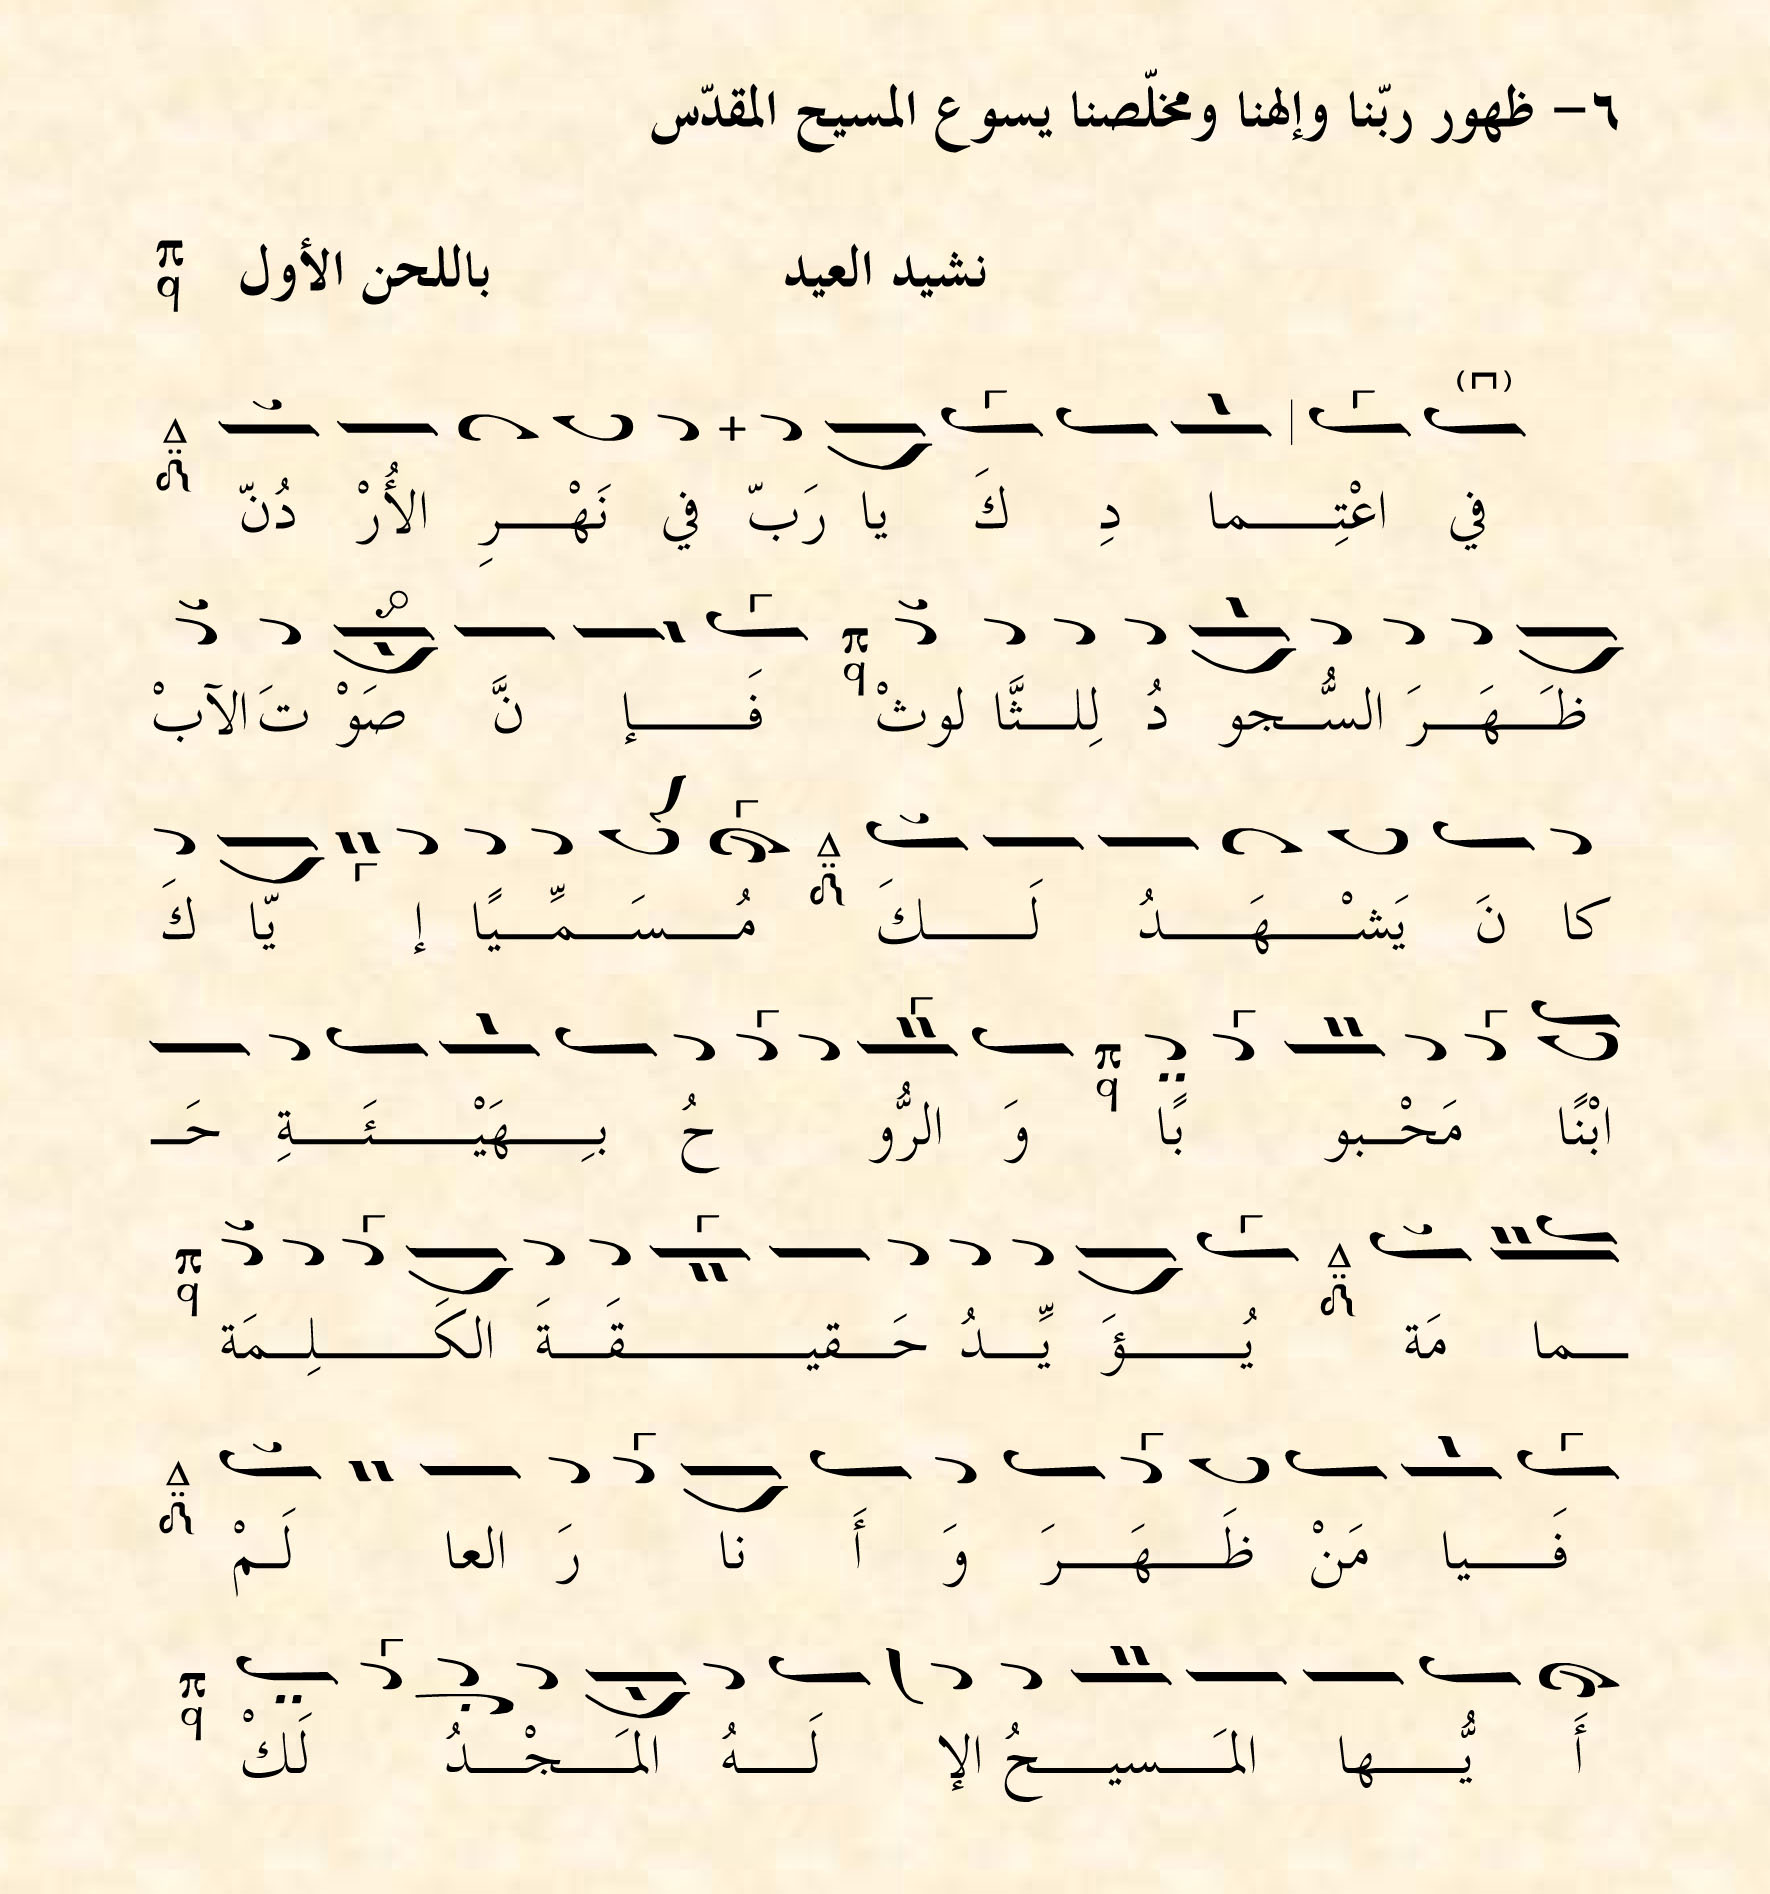 ٦– ظهور ربّنا وإلهنا ومخلّصنا يسوع المسيح المقدّس
نشيد العيد باللحن الأول π q
في اعْتِـــــما دِ كَ يا رَبّ في نَهْـــرِ الأُرْ دُنّ
ظَـــهَـــرَ السُّـــجو دُ لِلـــثَّا لوثْ فَـــــإ نَّ صَوْ تَ الآبْ
كا نَ يَشْـــــهَـــــدُ لَـــــكَ مُـــــسَـــــمِّـــــيًا إ يّا كَ
ابْنًا مَحْـــبو بًا وَ الرُّو حُ بِـــــهَيْـــــئَـــــةِ حَـ
ـــما مَة يُـــــؤَ يِّـــدُ حَـــقيـــــقَـــةَ الكَـــــلِـــمَة
فَـــــيا مَنْ ظَـــهَـــرَ وَ أَ نا رَ العا لَـــمْ
أَ يُّـــــها المَـــــسيـــــحُ الإ لَـــــهُ المَـــــجْـــــدُ لَكْ